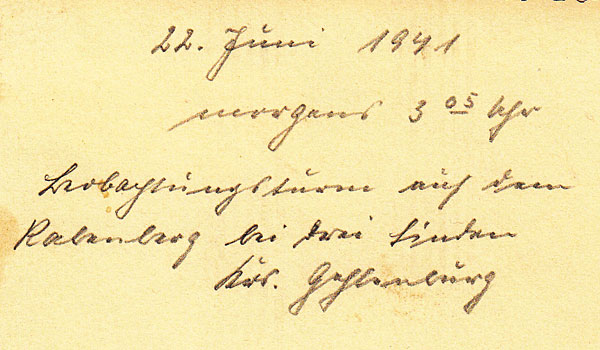 22. Juni 1941
morgens 3 05 Uhr
Beobachtungsturm auf dem
Rabenberg bei drei Linden
Krs. Gehlenburg